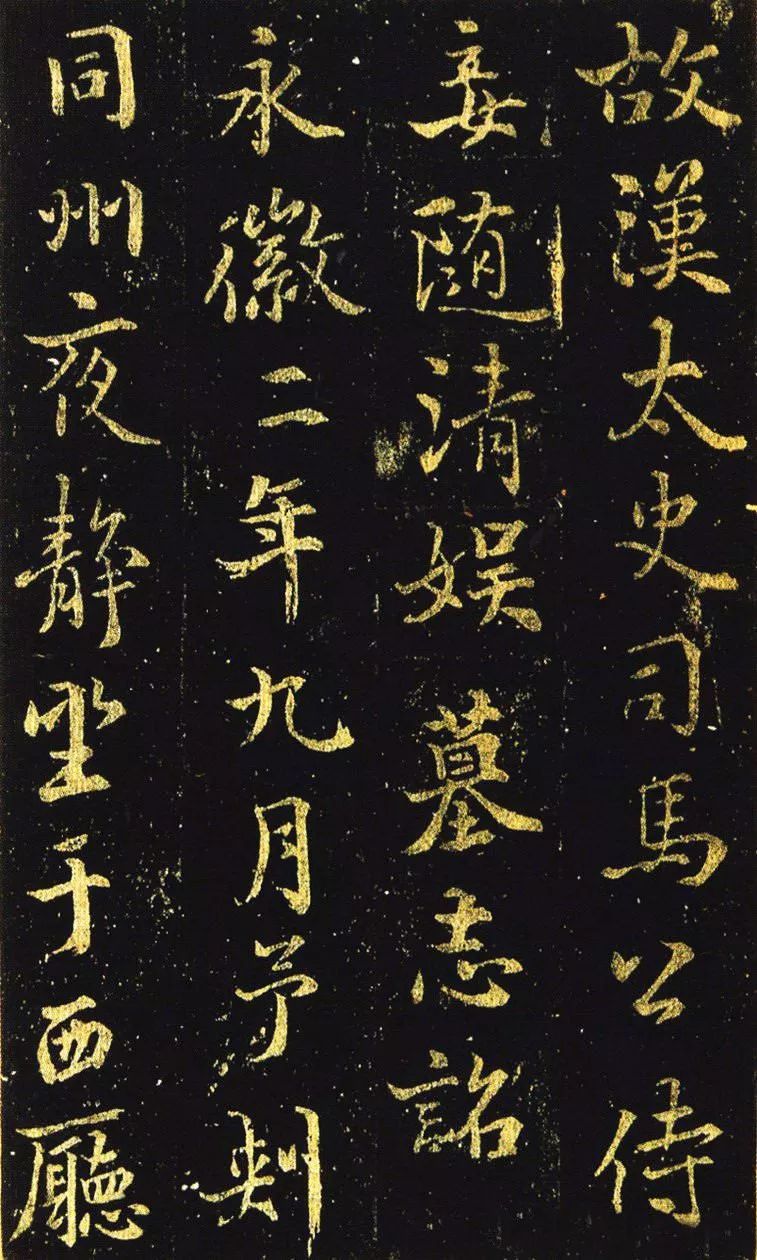 故漢太史司馬公侍
妾随清娱墓志銘
永徽二年九月予刺
同州夜静坐于西廳